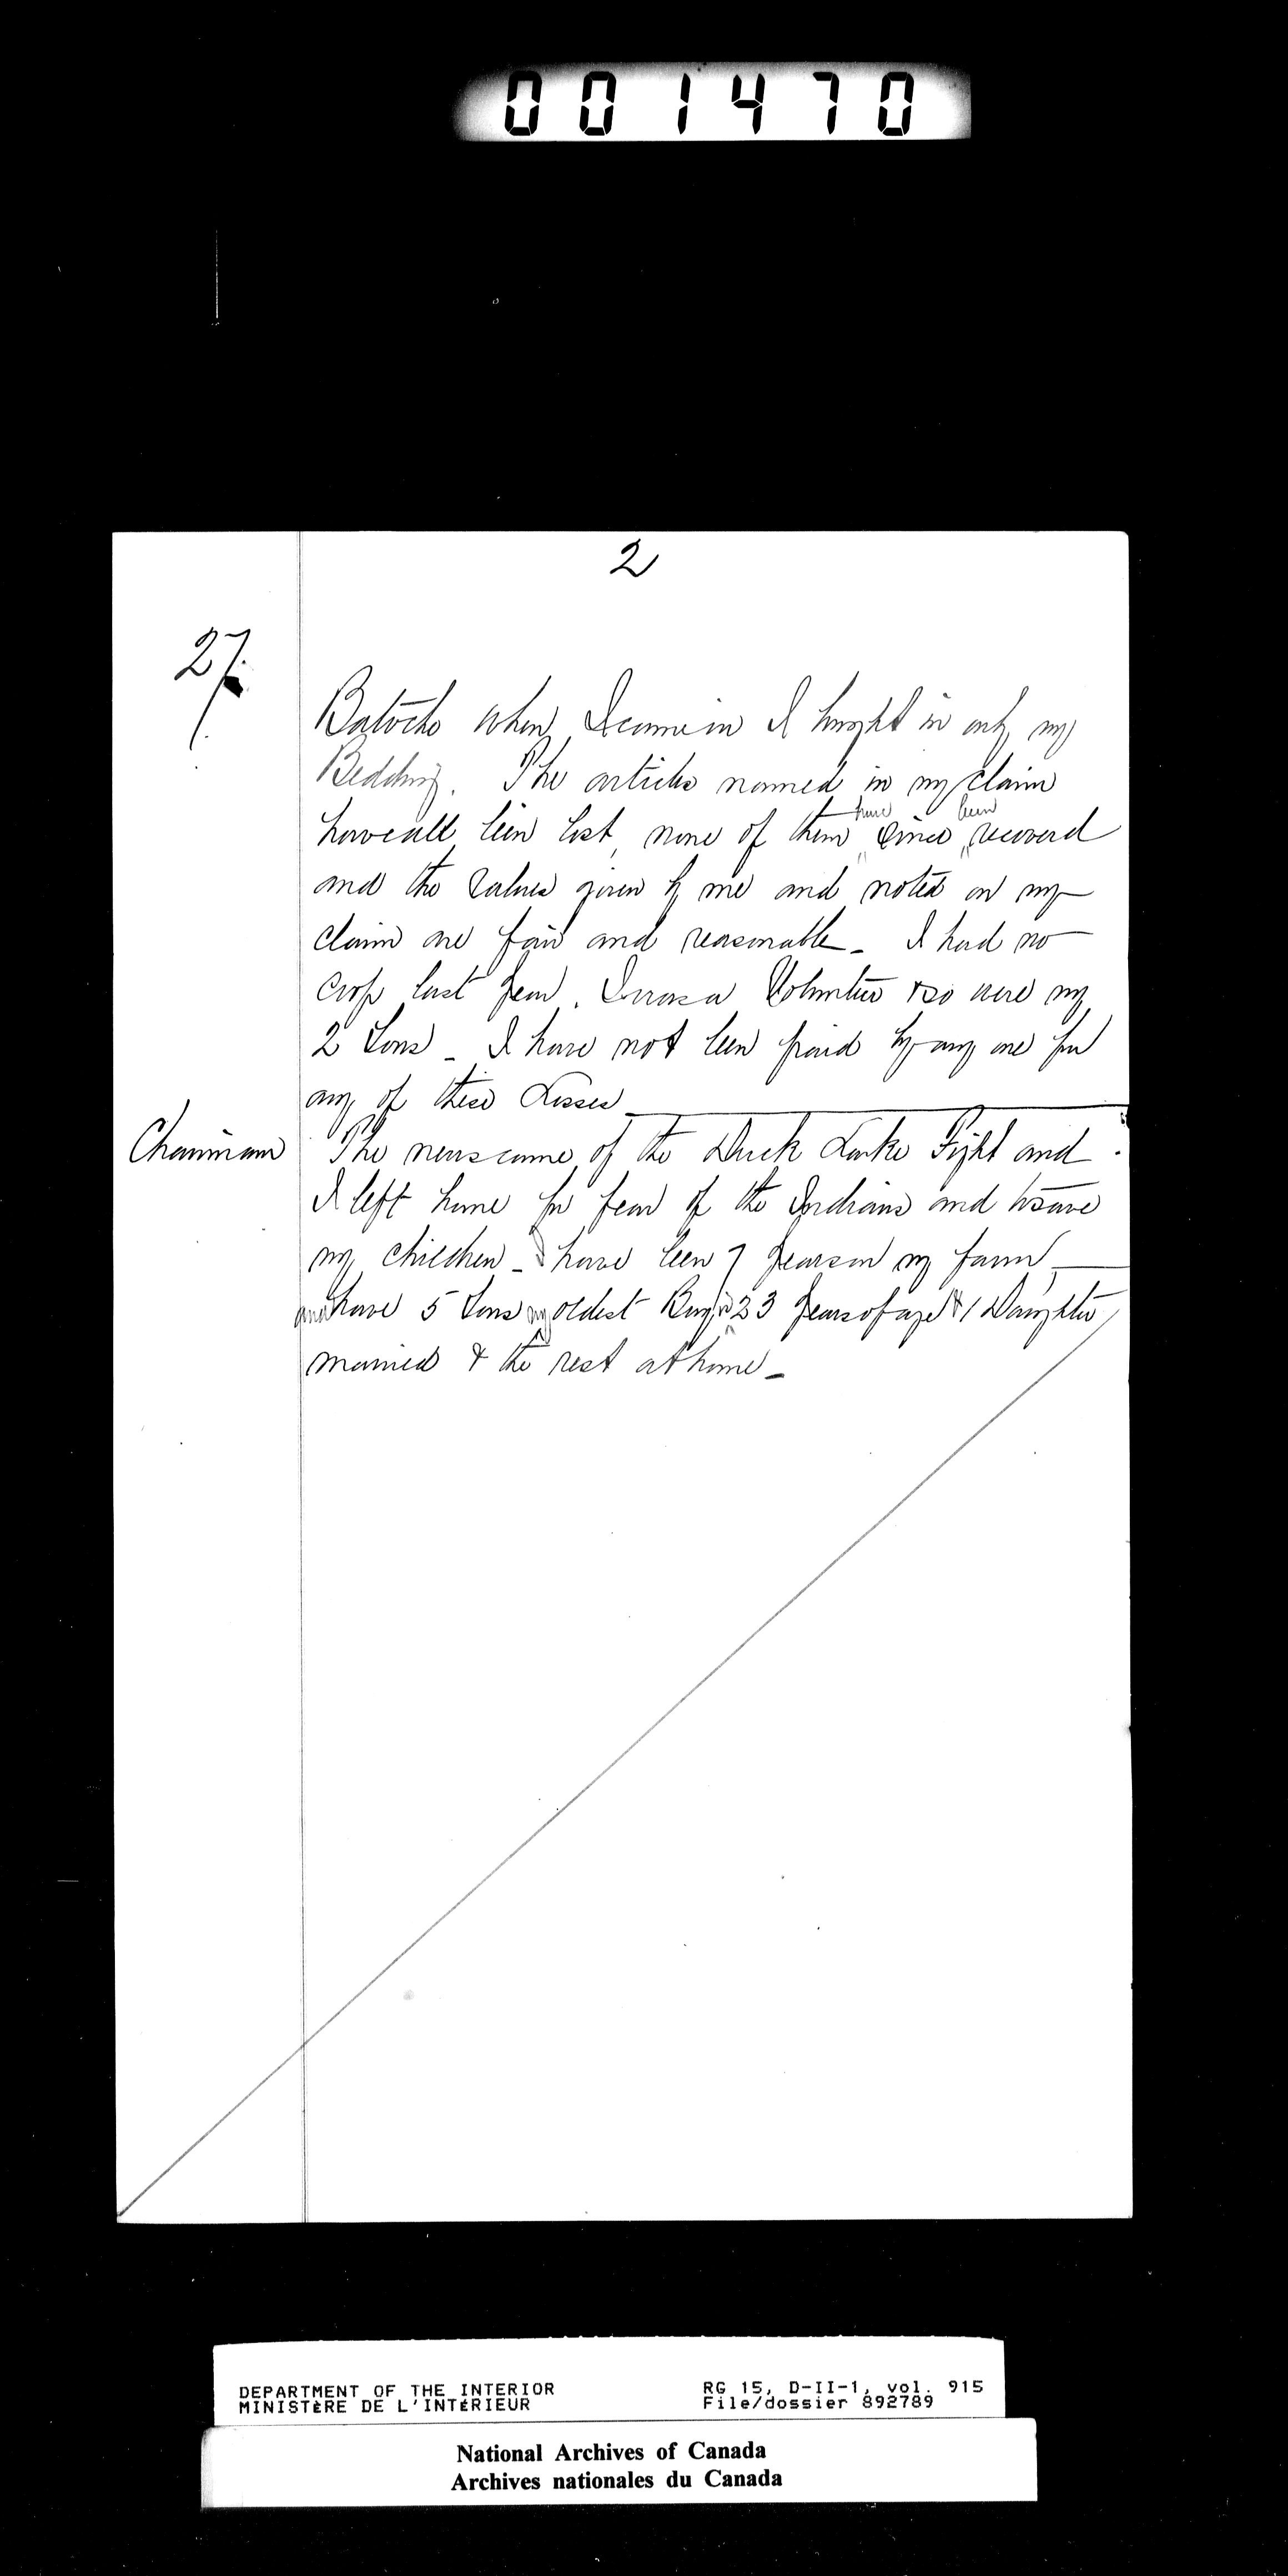 001470
2
27
Batoche when I came in I brought in only my
Bedding. The articles named in my claim
have all been lost, none of them have since been recoverd
and the values given by me and noted on my
claim are fair and reasonable - I had no
crop last year. I was a Volunteer & so were my
2 Sons - I have not been paid by any one for
any of these Losses
Chairman The news came of the Duck Lake Fight and
I left home for fear of the Indians and to save
my children - I have been 7 years on my farm
and have 5 Sons my oldest Boy is 23 years of age & 1 Daughter
married & the rest at home -
DEPARTMENT OF THE INTERIOR
MINISTÈRE DE L'INTÉRIEUR
RG 15, D-II-1, vol. 915
File/dossier 892789
National Archives of Canada
Archives nationales du Canada